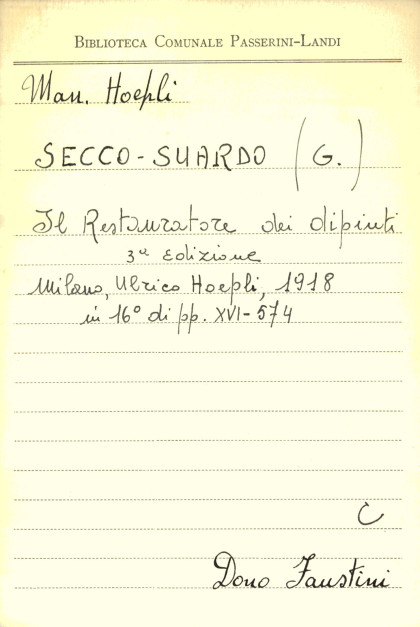 Biblioteca Comunale Passerini-Landi
Man. Hoepli
SECCO-SUARDO (G.)
Il Restauratore dei dipinti
3ª Edizione
Milano, Ulrico Hoepli, 1918
in 16° di pp. XVI-574
C
Dono Faustini